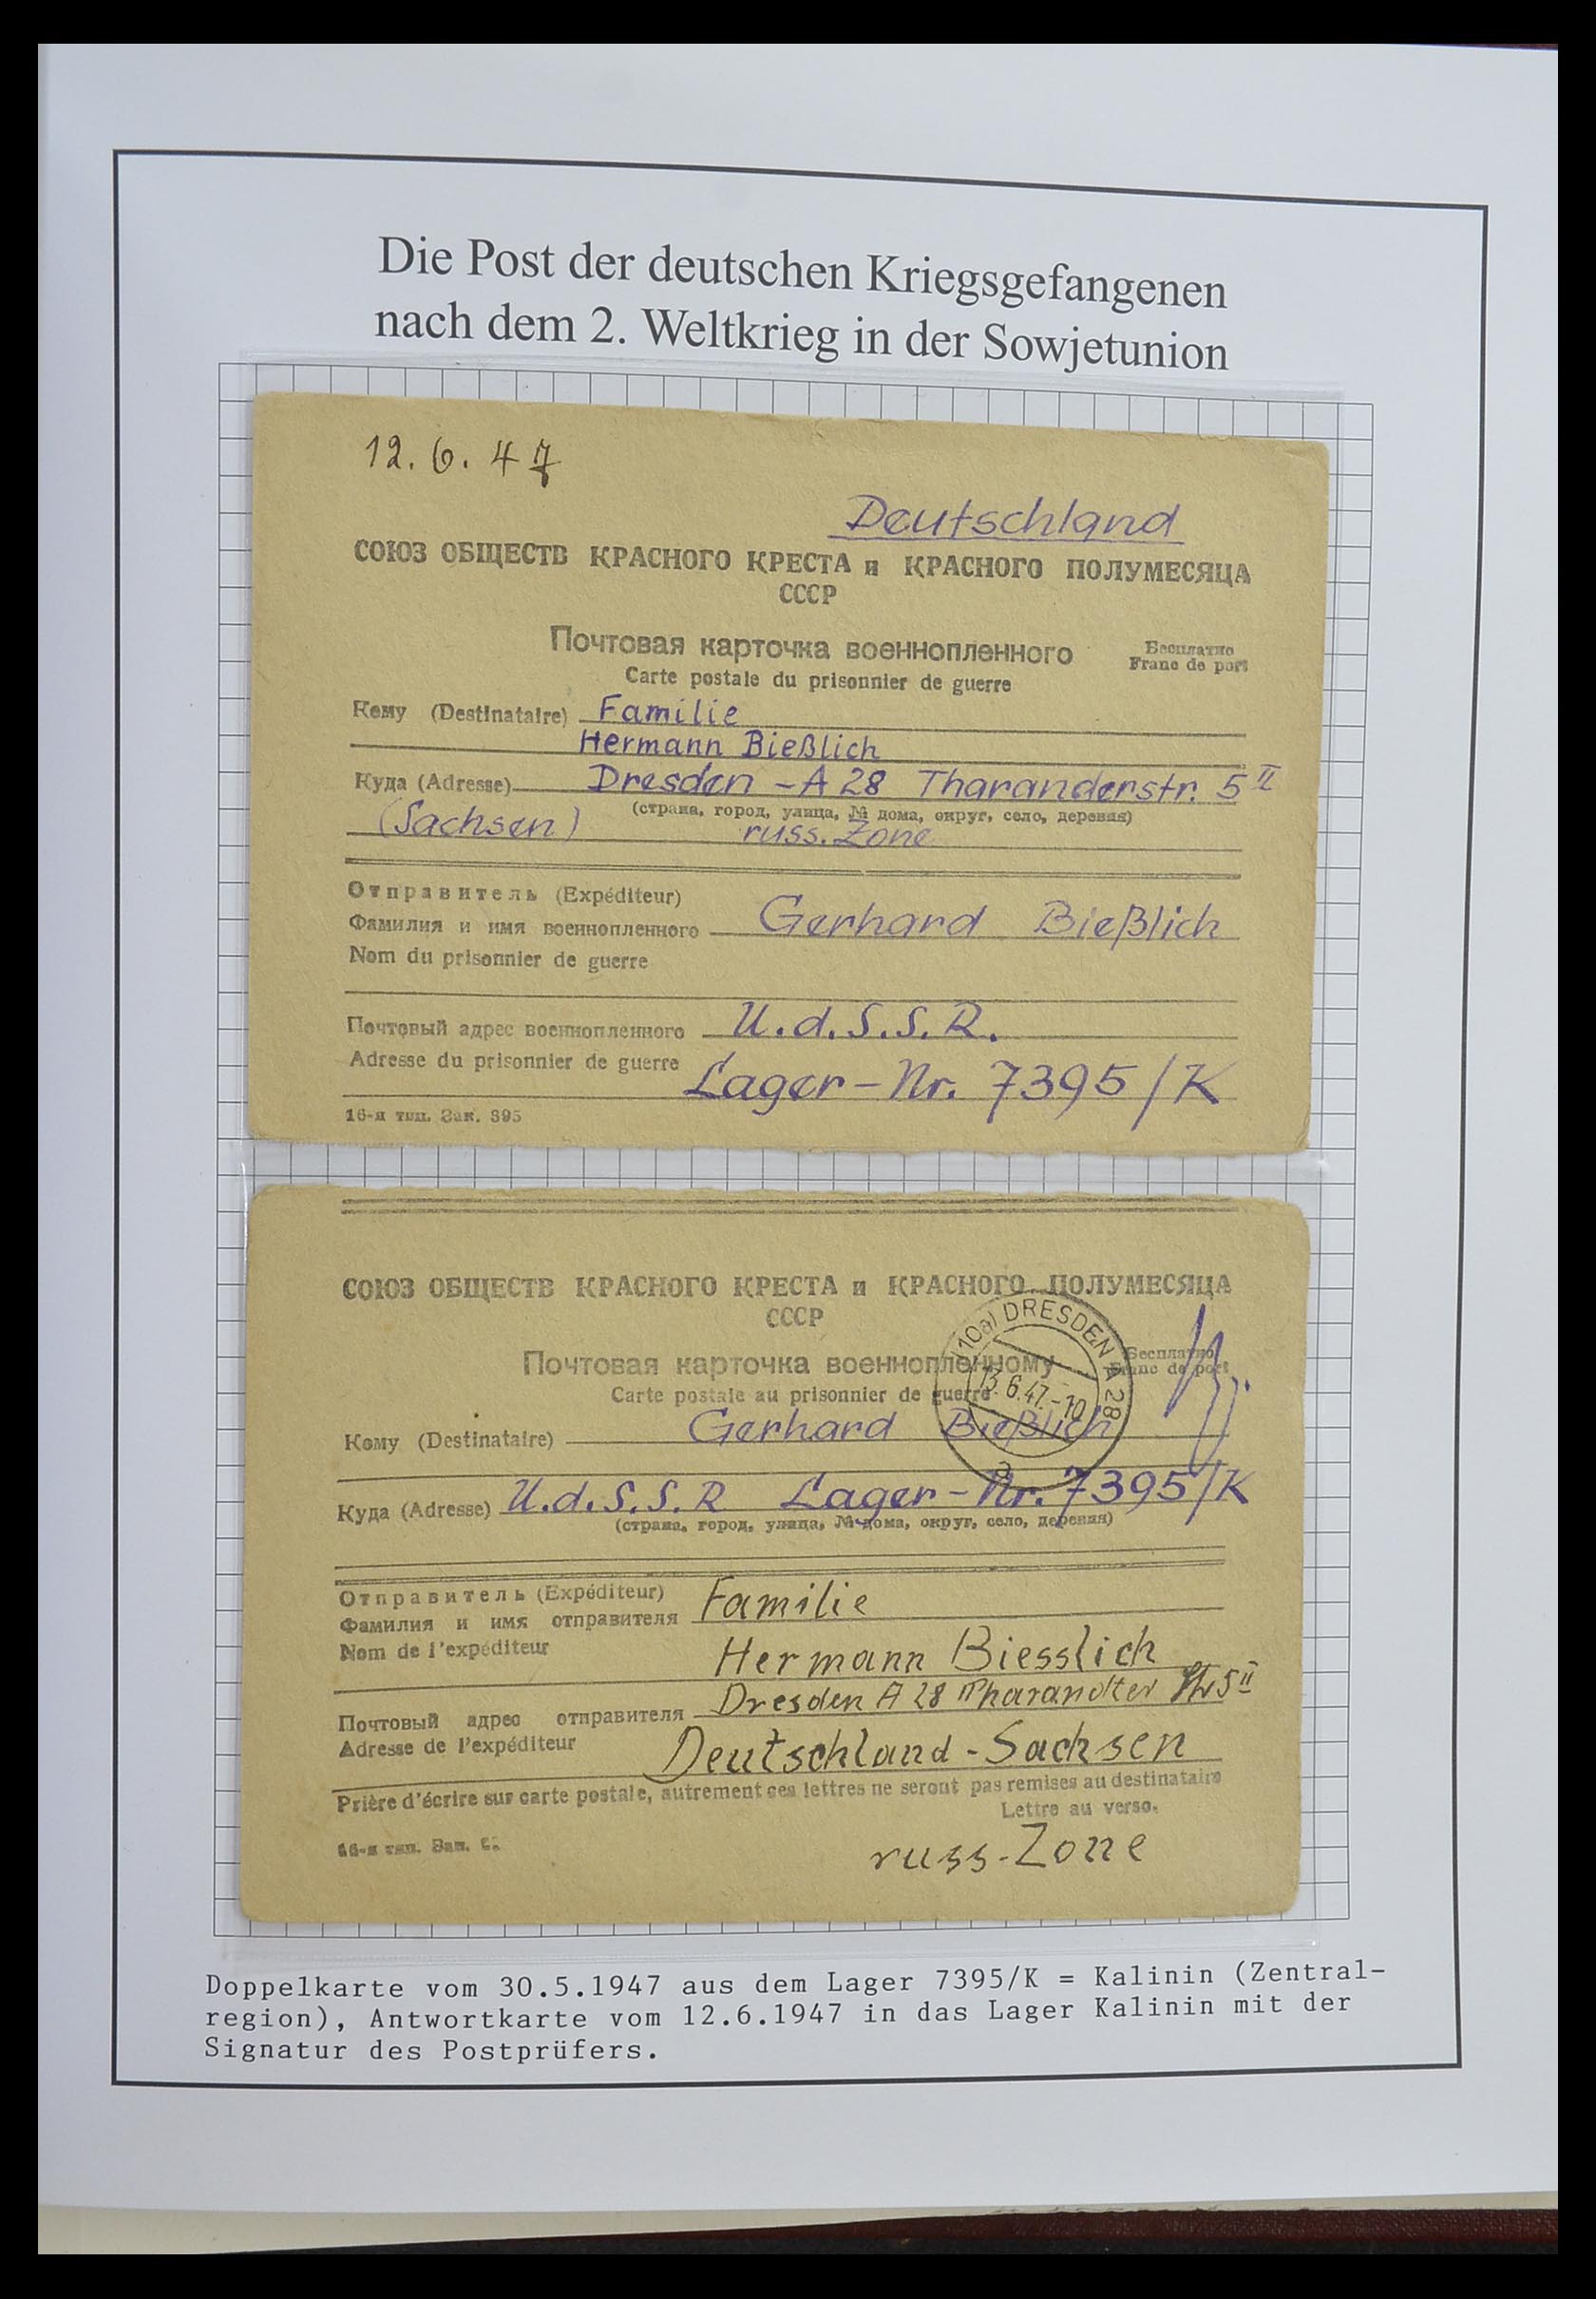 Die Post der deutschen Kriegsgefangenen
nach dem 2. Weltkrieg in der Sowjetunion
12.6.47
Deutschland
СОЮЗ ОБЩЕСТВ КРАСНОГО КРЕСТА и КРАСНОГО ПОЛУМЕСЯЦА
СССР
Почтовая карточка военнопленного
Бесплатно
Carte postale du prisonnier de guerre
Franc de port
Кому (Destinataire) Familie
Hermann Bießlich
Куда (Adresse) Dresden - A 28 Tharanderstr. 5 II
(страна, город, улица, № дома, округ, село, деревня)
(Sachsen) russ. Zone
Отправитель (Expéditeur)
Фамилия и имя военнопленного Gerhard Bießlich
Nom du prisonnier de guerre
Почтовый адрес военнопленного U.d.S.S.R.
Adresse du prisonnier de guerre Lager-Nr. 7395/K
16-я тип. Зак. 395
СОЮЗ ОБЩЕСТВ КРАСНОГО КРЕСТА и КРАСНОГО ПОЛУМЕСЯЦА
СССР
(10a) DRESDEN A 28
13.6.47.-10
a
Почтовая карточка военнопленному
Бесплатно
Carte postale au prisonnier de guerre
Franc de port
Кому (Destinataire) Gerhard Bießlich
Куда (Adresse) U.d.S.S.R Lager-Nr. 7395/K
(страна, город, улица, № дома, округ, село, деревня)
Отправитель (Expéditeur) Familie
Фамилия и имя отправителя
Nom de l'expéditeur Hermann Biesslich
Почтовый адрес отправителя Dresden A 28 Tharandter Str 5 II
Adresse de l'expéditeur Deutschland-Sachsen
Prière d'écrire sur carte postale, autrement ces lettres ne seront pas remises au destinataire
Lettre au verso.
16-я тип. Зак.
russ-Zone
Doppelkarte vom 30.5.1947 aus dem Lager 7395/K = Kalinin (Zentral-
region), Antwortkarte vom 12.6.1947 in das Lager Kalinin mit der
Signatur des Postprüfers.